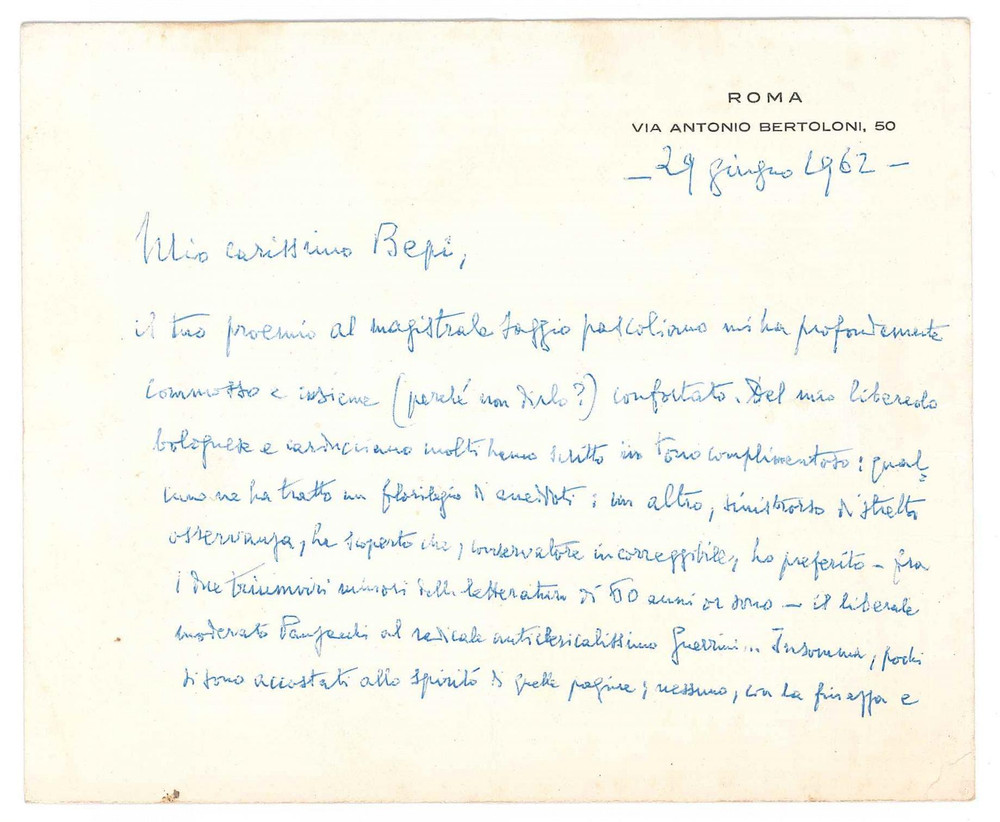 ROMA
VIA ANTONIO BERTOLONI, 50
— 29 giugno 1962 —
Mio carissimo Bepi,
il tuo proemio al magistrale saggio pascoliano mi ha profondamente
commosso e insieme (perché non dirlo?) confortato. Del mio libercolo
bolognese e carducciano molti hanno scritto in tono complimentoso: qual-
cuno ne ha tratto un florilegio di aneddoti; un altro, sinistrorso di stretta
osservanza, ha scoperto che, conservatore incorreggibile, ho preferito – fra
i due triumviri minori della letteratura di 80 anni or sono – il liberale
moderato Panzacchi al radicale anticlericalissimo Guerrini... Insomma, pochi
si sono accostati allo spirito di quelle pagine; nessuno, con la finezza e